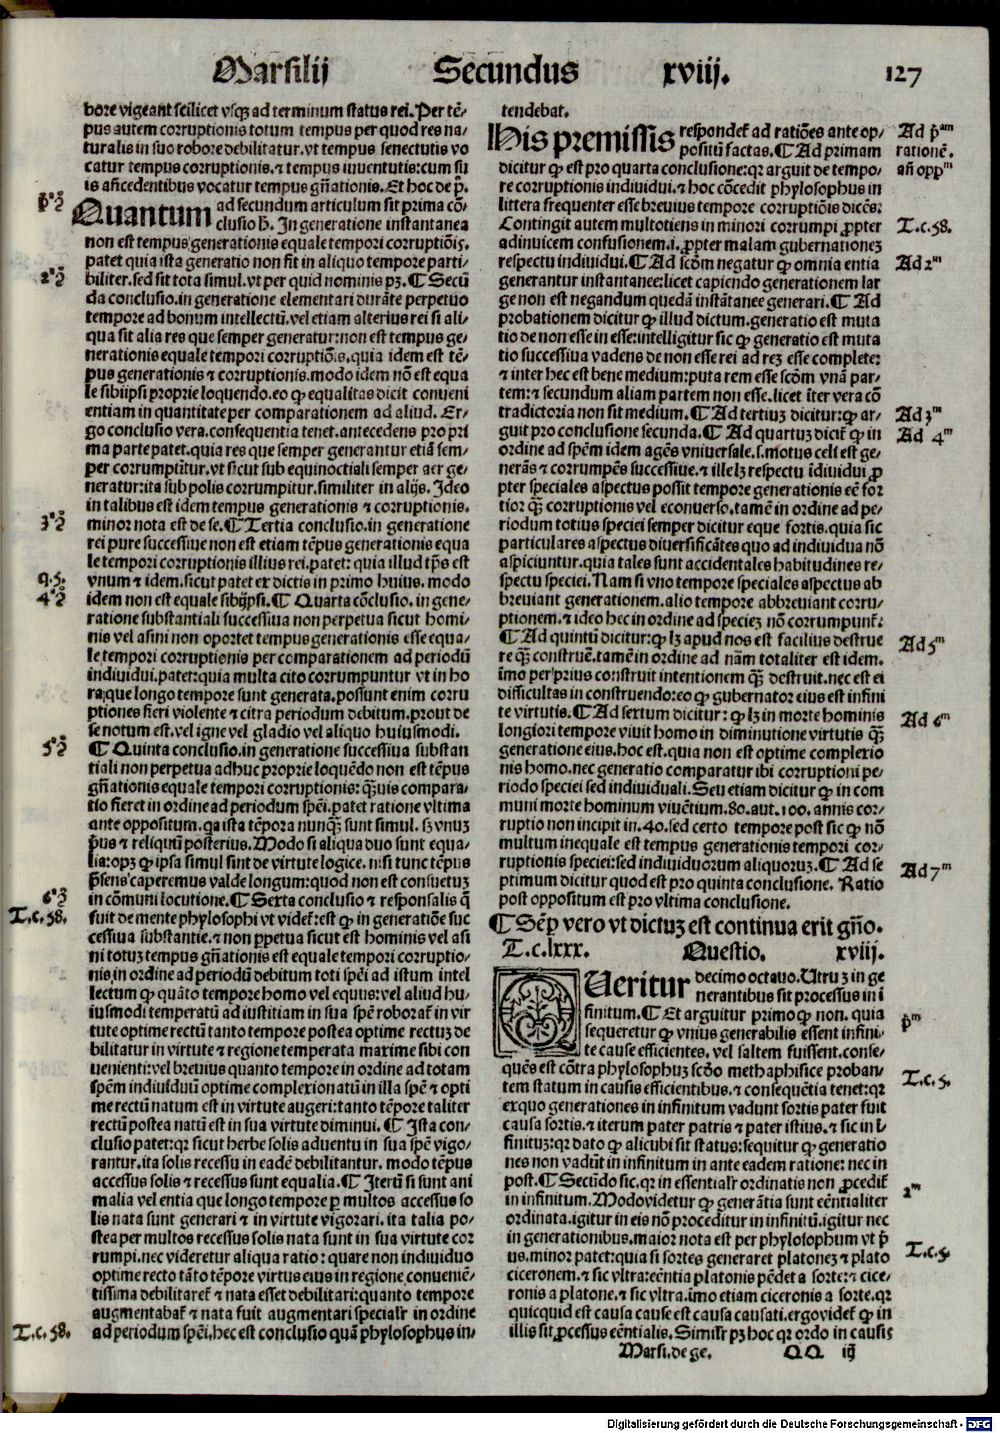 Marsilij Secundus xviij. 127
bore vigeant scilicet vsqꝫ ad terminum status rei. Per tē⸗
pus autem corruptionis totum tempus per quod res na⸗
turalis in suo robore debilitatur. vt tempus senectutis vo
catur tempus corruptionis. ⁊ tempus iuuentutis: cum su
is añcedentibus vocatur tempus gn̄ationis. Et hoc de p̄.
Quantum ad secundum articulum sit prima cō⸗
clusio h̄. In generatione instantanea
non est tempus generationis equale tempori corruptiōis.
patet quia ista generatio non fit in aliquo tempore parti⸗
biliter. sed sit tota simul. vt per quid nominis pꝫ. ¶ Secū
da conclusio. in generatione elementari durāte perpetuo
tempore ad bonum intellectū. vel etiam alterius rei si ali⸗
qua sit alia res que semper generatur: non est tempus ge⸗
nerationis equale tempori corruptiōis. quia idem est tē⸗
pus generationis ⁊ corruptionis. modo idem nō est equa
le sibiipsi proprie loquendo. eo ꝙ equalitas dicit conueni
entiam in quantitate per comparationem ad aliud. Er⸗
go conclusio vera. consequentia tenet. antecedens pro pri
ma parte patet. quia res que semper generantur etiā sem⸗
per corrumpūtur. vt sicut sub equinoctiali semper aer ge⸗
neratur: ita sub polis corrumpitur. similiter in alijs. Ideo
in talibus est idem tempus generationis ⁊ corruptionis.
minor nota est de se. ¶ Tertia conclusio. in generatione
rei pure successiue non est etiam tēpus generationis equa
le tempori corruptionis illius rei. patet: quia illud tp̄s est
vnum ⁊ idem. sicut patet ex dictis in primo huius. modo
idem non est equale sibijpsi. ¶ Quarta cōclusio. in gene⸗
ratione substantiali successiua non perpetua sicut homi⸗
nis vel asini non oportet tempus generationis esse equa⸗
le tempori corruptionis per comparationem ad periodū
indiuidui. patet: quia multa cito corrumpuntur vt in ho
ra: que longo tempore sunt generata. possunt enim corru
ptiones fieri violente ⁊ citra periodum debitum. prout de
se notum est. vel igne vel gladio vel aliquo huiusmodi.
¶ Quinta conclusio. in generatione successiua substan
tiali non perpetua adhuc proprie loquēdo non est tēpus
gn̄ationis equale tempori corruptionis: q̄uis compara⸗
tio fieret in ordine ad periodum spēi. patet ratione vltima
ante oppositum. qa ista tēpora nunq̄ sunt simul. sꝫ vnuꝫ
p̄us ⁊ reliquū posterius. Modo si aliqua duo sunt equa⸗
lia: opꝫ ꝙ ipsa simul sint de virtute logice. nisi tunc tēpus
p̄sens caperemus valde longum: quod non est consuetuꝫ
in cōmuni locutione. ¶ Sexta conclusio ⁊ responsalis q̄
fuit de mente phylosophi vt videt: est ꝙ in generatiōe suc
cessiua substantie. ⁊ non ꝑpetua sicut est hominis vel asi
ni totuꝫ tempus gn̄ationis est equale tempori corruptio⸗
nis. in ordine ad periodū debitum toti spēi ad istum intel
lectum ꝙ quāto tempore homo vel equus: vel aliud hu⸗
iusmodi temperatū ad iustitiam in sua spē roborat̄ in vir
tute optime rectū tanto tempore postea optime rectuꝫ de
bilitatur in virtute ⁊ regione temperata maxime sibi con
uenienti: vel breuius quanto tempore in ordine ad totam
spēm indiuiduū optime complexionatū in illa spē ⁊ opti
me rectū natum est in virtute augeri: tanto tēpore taliter
rectū postea natū est in sua virtute diminui. ¶ Ista con⸗
clusio patet: qꝛ sicut herbe solis aduentu in sua spē vigo⸗
rantur. ita solis recessu in eadē debilitantur. modo tēpus
accessus solis ⁊ recessus sunt equalia. ¶ Iterū si sunt ani
malia vel entia que longo tempore ꝑ multos accessus so
lis nata sunt generari ⁊ in virtute vigorari. ita talia po⸗
stea per multos recessus solis nata sunt in sua virtute cor
rumpi. nec videretur aliqua ratio: quare non indiuiduo
optime recto tāto tēpore virtus eius in regione conueniē⸗
tissima debilitaret̄ ⁊ nata esset debilitari: quanto tempore
augmentabat̄ ⁊ nata fuit augmentari specialr̄ in ordine
ad periodum spēi. hec est conclusio quā phylosophus in⸗
p͛ꝯ̄
2ꝯ̄
3ꝯ̄
q. 5.
4ꝯ̄
5ꝯ̄
6ꝯ̄
T.c. 58.
T.c. 58.
tendebat.
His premissis respondet̄ ad ratiōes ante op⸗
positū factas. ¶ Ad primam
dicitur ꝙ est pro quarta conclusione: qꝛ arguit de tempo⸗
re corruptionis indiuidui. ⁊ hoc cōcedit phylosophus in
littera frequenter esse breuius tempore corruptiōis dicēs:
Contingit autem multotiens in minori corrumpi ꝓpter
adinuicem confusionem. i. ꝓpter malam gubernationeꝫ
respectu indiuidui. ¶ Ad scd̄m negatur ꝙ omnia entia
generantur instantanee: licet capiendo generationem lar
ge non est negandum quedā instātanee generari. ¶ Ad
probationem dicitur ꝙ illud dictum. generatio est muta
tio de non esse in esse: intelligitur sic ꝙ generatio est muta
tio successiua vadens de non esse rei ad reꝫ esse complete:
⁊ inter hec est bene medium: puta rem esse scd̄m vnā par⸗
tem: ⁊ secundum aliam partem non esse. licet iter vera cō
tradictoria non sit medium. ¶ Ad tertiuꝫ dicitur: ꝙ ar⸗
guit pro conclusione secunda. ¶ Ad quartuꝫ dicit̄ ꝙ in
ordine ad spēm idem agēs vniuersale. s. motus celi est ge⸗
nerās ⁊ corrumpēs successiue. ⁊ ille lꝫ respectu īdiuidui ꝓ
pter speciales aspectus possit tempore generationis eē for
tior q̄ꝫ corruptionis vel econuerso. tamē in ordine ad pe⸗
riodum totius speciei semper dicitur eque fortis. quia sic
particulares aspectus diuersificātes quo ad indiuidua nō
aspiciuntur. quia tales sunt accidentales habitudines re⸗
spectu speciei. Nam si vno tempore speciales aspectus ab
breuiant generationem. alio tempore abbreuiant corru⸗
ptionem. ⁊ ideo hec in ordine ad specieꝫ nō corrumpunt̄:
¶ Ad quintū dicitur: ꝙ lꝫ apud nos est facilius destrue
re q̄ꝫ construē. tamē in ordine ad nām totaliter est idem.
imo per prius construit intentionem q̄ꝫ destruit. nec est ei
difficultas in construendo: eo ꝙ gubernator eius est infini
te virtutis. ¶ Ad sextum dicitur: ꝙ lꝫ in morte hominis
longiori tempore viuit homo in diminutione virtutis q̄ꝫ
generatione eius. hoc est. quia non est optime complexio
nis homo. nec generatio comparatur ibi corruptioni pe⸗
riodo speciei sed indiuiduali. Seu etiam dicitur ꝙ in com
muni morte hominum viuētium. 80. aut. 100. annis cor⸗
ruptio non incipit in. 40. sed certo tempore post sic ꝙ nō
multum inequale est tempus generationis tempori cor⸗
ruptionis speciei: sed indiuiduorum aliquoruꝫ. ¶ Ad se
ptimum dicitur quod est pro quinta conclusione. Ratio
post oppositum est pro vltima conclusione.
¶ Sēꝑ vero vt dictuꝫ est continua erit gn̄o.
T.c. lxxx. Questio. xviij.
QUeritur decimo octauo. Utruꝫ in ge
nerantibus sit processus in ī
finitum. ¶ Et arguitur primo ꝙ non. quia
sequeretur ꝙ vnius generabilis essent infini⸗
te cause efficientes. vel saltem fuissent. conse⸗
quēs est cōtra phylosophuꝫ scd̄o methaphisice proban⸗
tem statum in causis efficientibus. ⁊ consequētia tenet: qꝛ
ex quo generationes in infinitum vadunt sortis pater fuit
causa sortis. ⁊ iterum pater patris ⁊ pater istius. ⁊ sic in ī
finituꝫ: qꝛ dato ꝙ alicubi sit status: sequitur ꝙ generatio
nes non vadūt in infinitum in ante eadem ratione: nec in
post. ¶ Secūdo sic. qꝛ in essentialr̄ ordinatis non ꝓcedit̄
in infinitum. Modo videtur ꝙ generātia sunt eēntialiter
ordinata. igitur in eis nō proceditur in infinitū. igitur nec
in generationibus. maior nota est per phylosophum vt p̄
us. minor patet: quia si sortes generaret platoneꝫ ⁊ plato
ciceronem. ⁊ sic vltra: eēntia platonis pēdet a sorte: ⁊ cice⸗
ronis a platone. ⁊ sic vltra. imo etiam ciceronis a sorte. qꝛ
quicquid est causa cause est causa causati. ergo videt̄ ꝙ in
illis sit ꝓcessus eēntialis. Similr̄ pꝫ hoc qꝛ ordo in causis
Ad p̄ᵃᵐ
rationē.
añ oppᵐ
T.c. 58.
Ad 2ᵐ
Ad 3ᵐ
Ad 4ᵐ
Ad 5ᵐ
Ad 6ᵐ
Ad 7ᵐ
p̄ᵐ
T.c. 5.
2ᵐ
T.c. 5.
Marsi. de ge. QQ iij
Digitalisierung gefördert durch die Deutsche Forschungsgemeinschaft - DFG